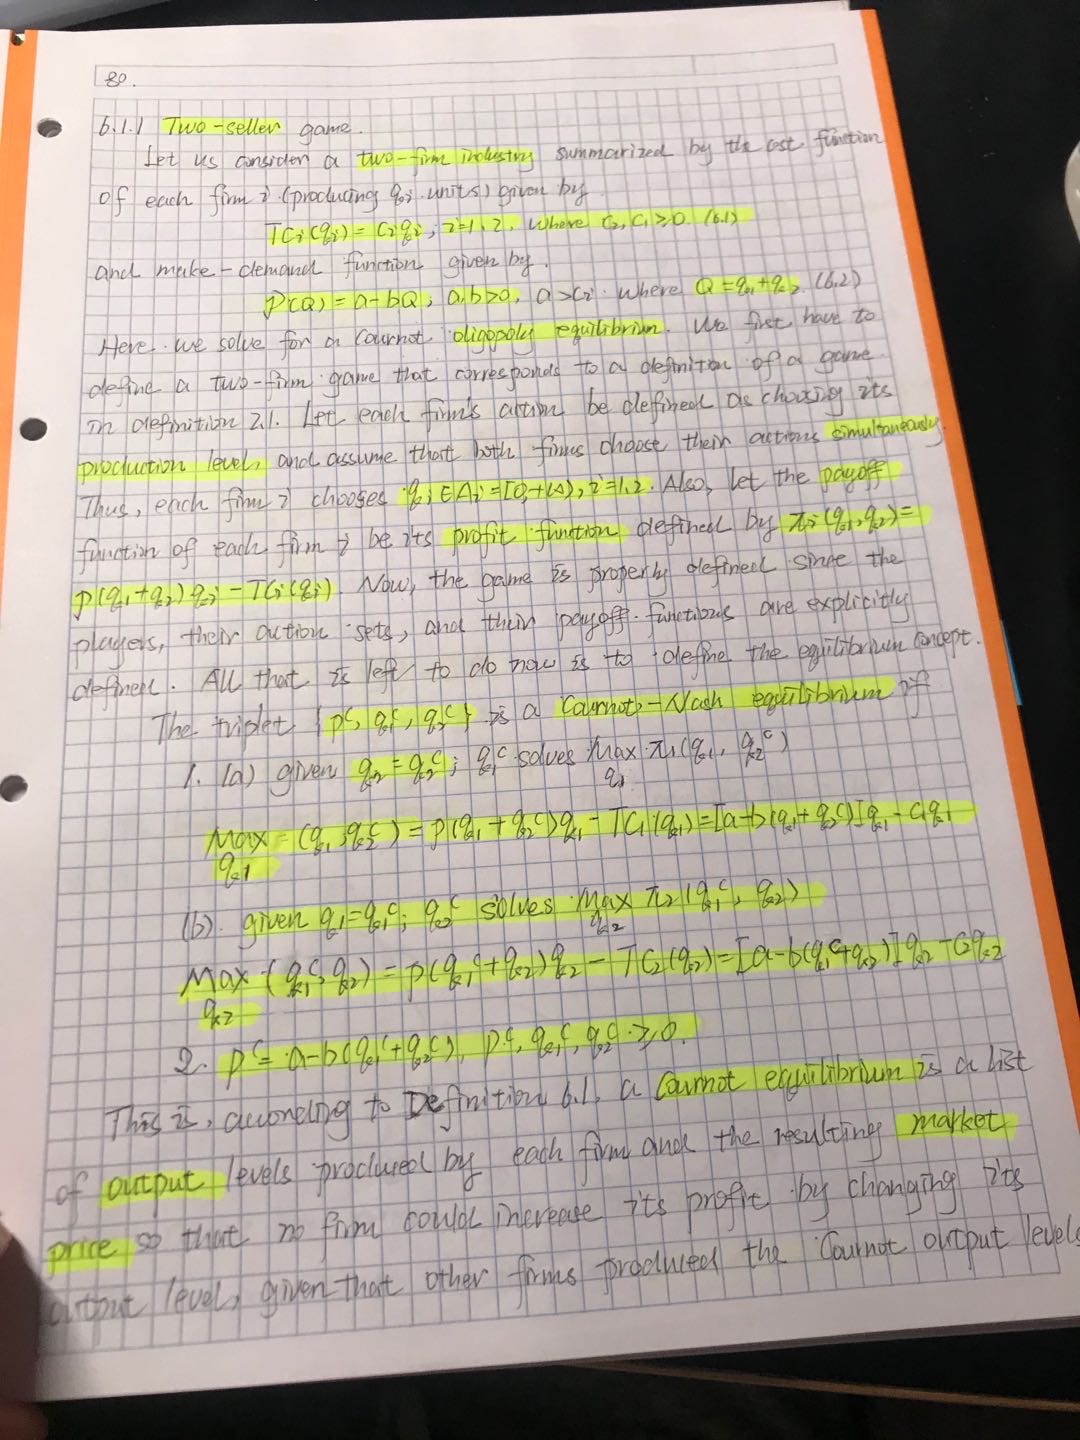 80.
6.1.1 Two-seller game.
Let us consider a two-firm industry summarized by the cost function
of each firm i (producing qi units) given by
TCi(qi) = Ciqi, i=1,2, where C2, C1 ≥0. (6.1)
and make-demand function given by.
P(Q) = a-bQ, a,b>0, a>Ci. where Q=q1+q2. (6.2)
Here. we solve for a Cournot oligopoly equilibrium. We first have to
define a two-firm game that corresponds to a definition of a game
in definition 2.1. Let each firm's action be defined as choosing its
production level, and assume that both firms choose their actions simultaneously.
Thus, each firm i chooses qi ∈ Ai = [0,+∞), i=1,2. Also, let the payoff
function of each firm i be its profit function defined by πi(q1,q2)=
p(q1+q2)qi - TCi(qi). Now, the game is properly defined since the
players, their action sets, and their payoff functions are explicitly
defined. All that is left to do now is to define the equilibrium concept.
The triplet {pc, q1c, q2c} is a Cournot-Nash equilibrium if
1. (a) given q2 = q2c; q1c solves Max π1(q1, q2c)
q1
Max = (q1, q2c) = p(q1 + q2c)q1 - TC1(q1) = [a-b(q1+q2c)]q1 - C1q1
q1
(b). given q1=q1c; q2c solves Max π2(q1c, q2)
q2
Max (q1c, q2) = p(q1c+q2)q2 - TC2(q2) = [a-b(q1c+q2)]q2 - C2q2
q2
2. pc = a-b(q1c+q2c), pc, q1c, q2c ≥0.
This is, according to Definition 6.1, a Cournot equilibrium is a list
of output levels produced by each firm and the resulting market
price so that no firm could increase its profit by changing its
output level, given that other firms produced the Cournot output levels